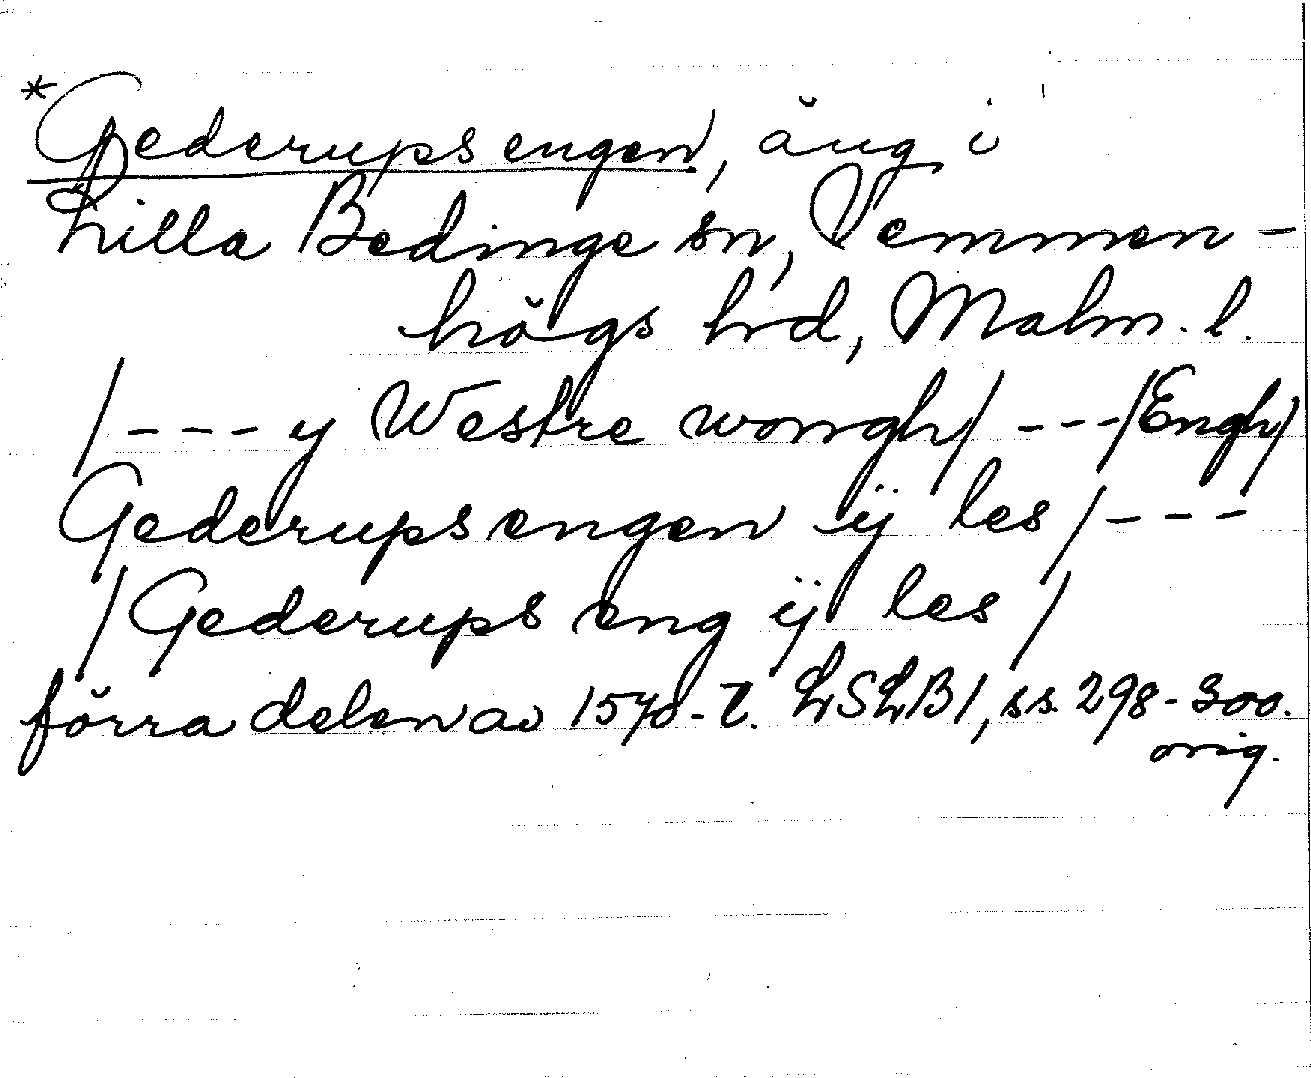 *Gederups engen, äng i
Lilla Bedinge sn, Vemmen-
högs hrd, Malm. l.
/--- y Westre wongh/ ---/Engh/
Gederups engen ij les /---
/Gederups eng ij les /
förra delen av 1570-t. LSLB1, ss. 298-300.
orig.